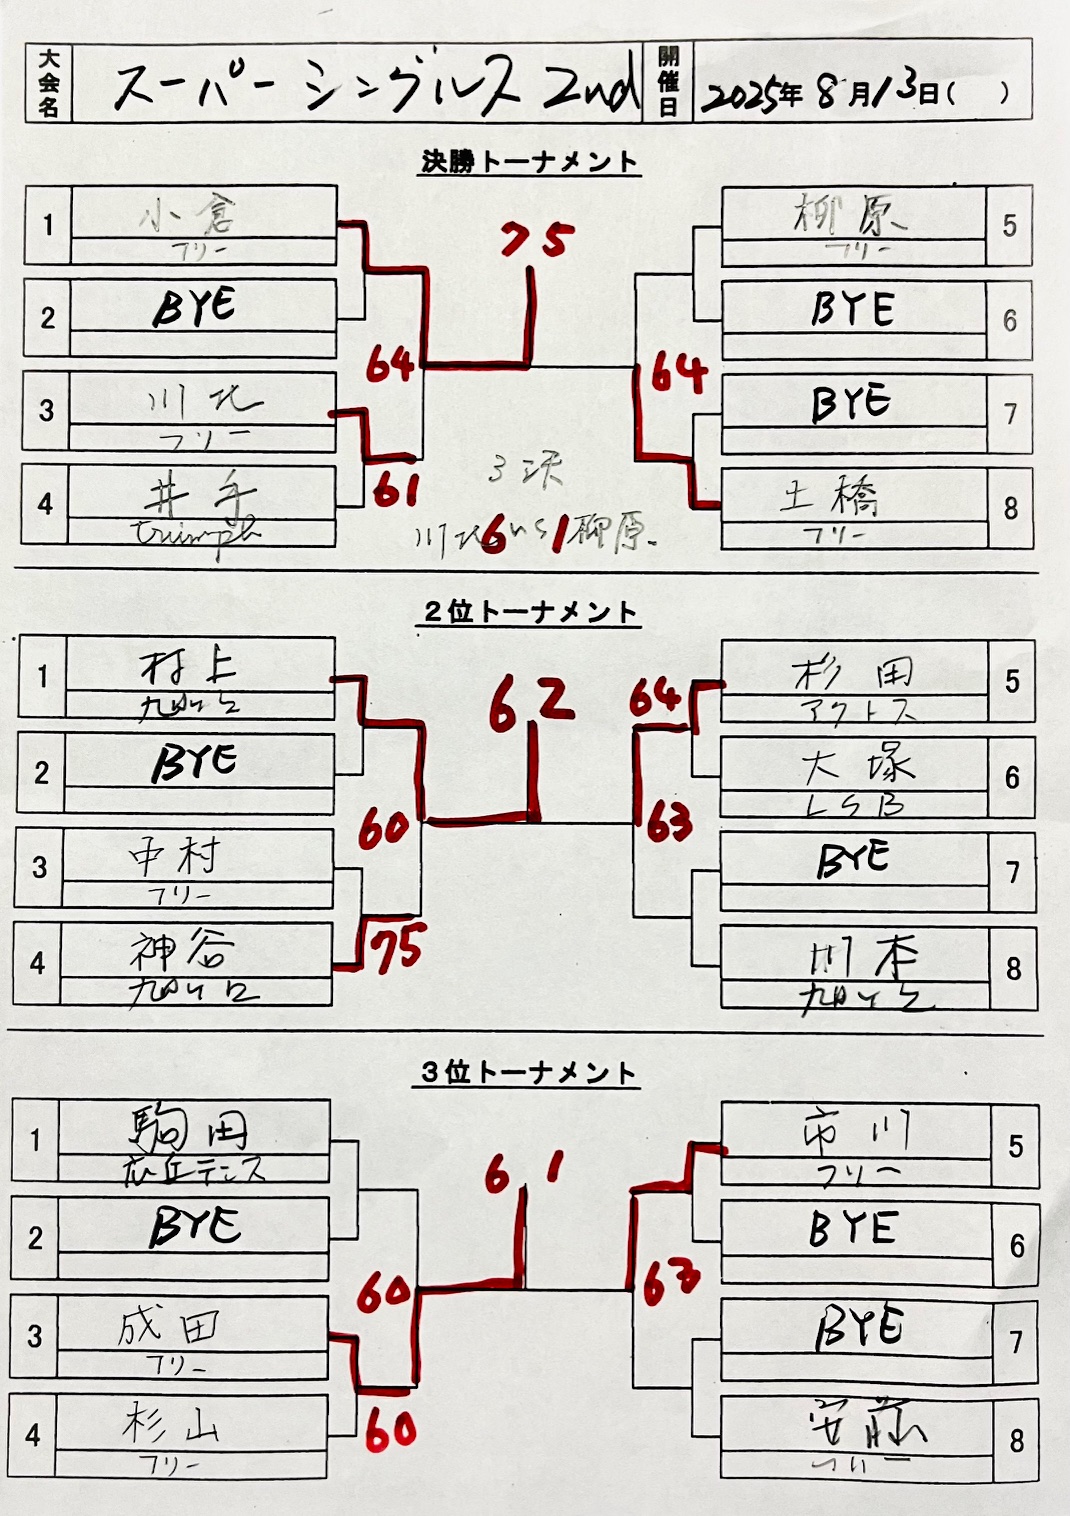 大会名 スーパーシングルス 2nd 開催日 2025年 8月13日( )
決勝トーナメント
1 小倉 フリー
2 BYE
3 川北 フリー
4 井手 triumph
64
61
75
64
3決
川北 6 vs 1 柳原
柳原 フリー 5
BYE 6
BYE 7
土橋 フリー 8
2位トーナメント
1 村上
2 BYE
3 中村 フリー
4 神谷
60
75
62
64
63
杉田 アクトス 5
大塚 LSB 6
BYE 7
川本 8
3位トーナメント
1 駒田 広丘テニス
2 BYE
3 成田 フリー
4 杉山 フリー
60
60
61
63
市川 フリー 5
BYE 6
BYE 7
安藤 フリー 8